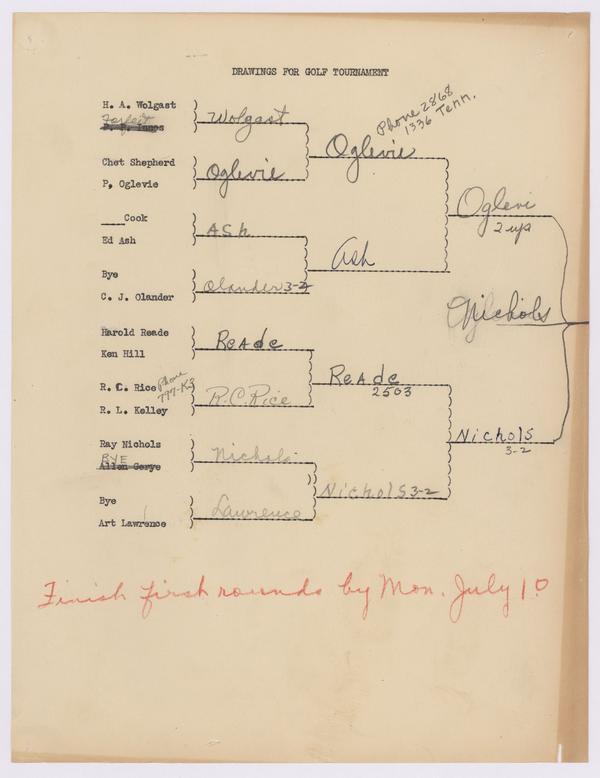 DRAWINGS FOR GOLF TOURNAMENT
Phone 2868
1336 Tenn.
H. A. Wolgast
Forfeit
Wolgast
Oglevie
Chet Shepherd
P. Oglevie
Oglevie
Oglevi
2 up
____Cook
Ed Ash
Ash
Ash
Bye
C. J. Olander
Olander 3-2
Nichols
Harold Reade
Ken Hill
Reade
Reade
2503
R. C. Rice
Phone
777-K3
R. L. Kelley
R.C. Rice
Nichols
3-2
Ray Nichols
BYE
Allen Gerye
Nichols
Nichols 3-2
Bye
Art Lawrence
Lawrence
Finish first rounds by Mon. July 1